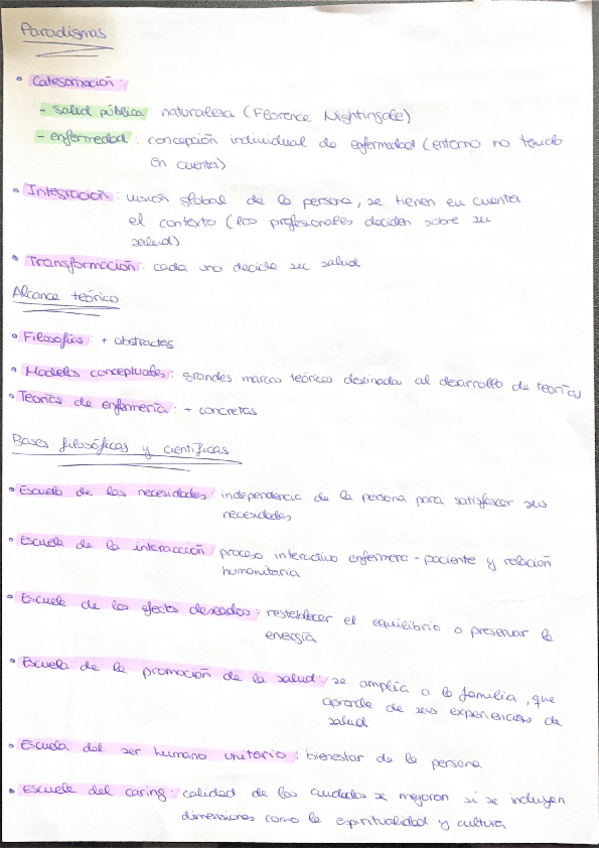 Paradigmas
• Categorización:
- salud pública: naturaleza (Florence Nightingale)
- enfermedad: concepción individual de enfermedad (entorno no tenido
en cuenta)
• Integración: visión global de la persona, se tienen en cuenta
el contexto (los profesionales deciden sobre su
salud)
• Transformación: cada uno decide su salud
Alcance teórico
• Filosofías: + abstractas
• Modelos conceptuales: grandes marcos teóricos destinados al desarrollo de teorías
• Teorías de enfermería: + concretas
Bases filosóficas y científicas
• Escuela de las necesidades: independencia de la persona para satisfascer sus
necesidades
• Escuela de la interacción: proceso interactivo enfermera - paciente y relación
humanitaria
• Escuela de los efectos deseados: restablecer el equilibrio o preservar la
energía
• Escuela de la promoción de la salud: se amplía a la familia, que
aprende de sus experiencias de
salud
• Escuela del ser humano unitario: bienestar de la persona
• Escuela del caring: calidad de los cuidados se mejoran si se incluyen
dimensiones como la espiritualidad y cultura